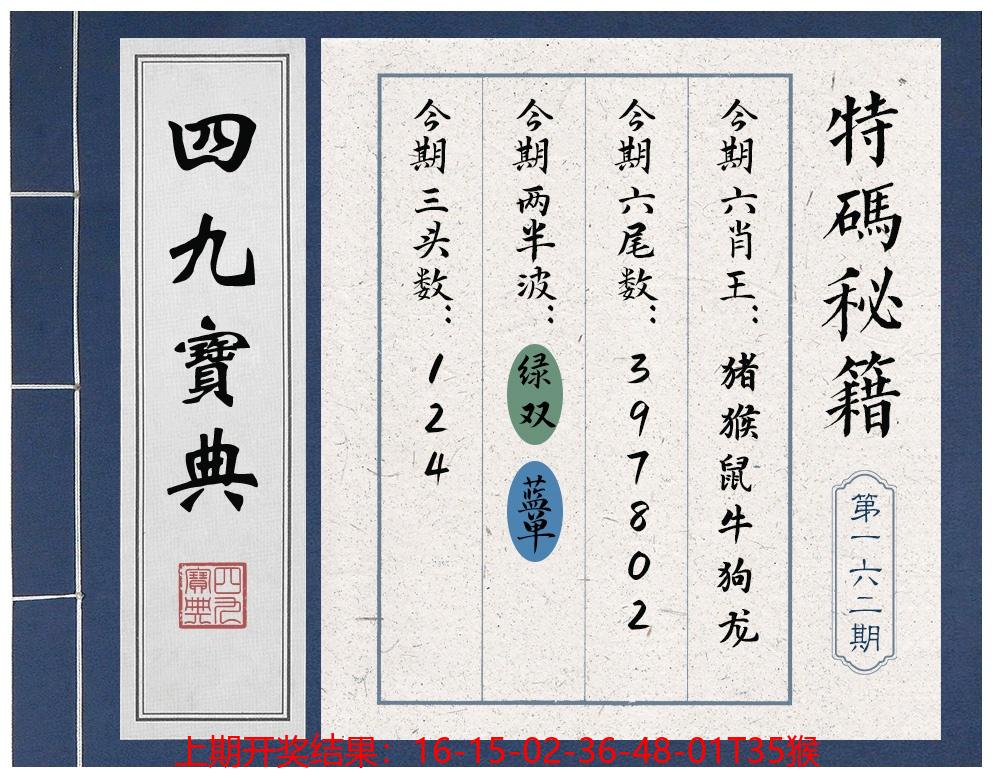 特碼秘籍
第一六二期
今期六肖王：猪猴鼠牛狗龙
今期六尾数：397802
今期两半波：绿双 蓝单
今期三头数：124
四九寶典
四九寶典
上期开奖结果：16-15-02-36-48-01T35猴